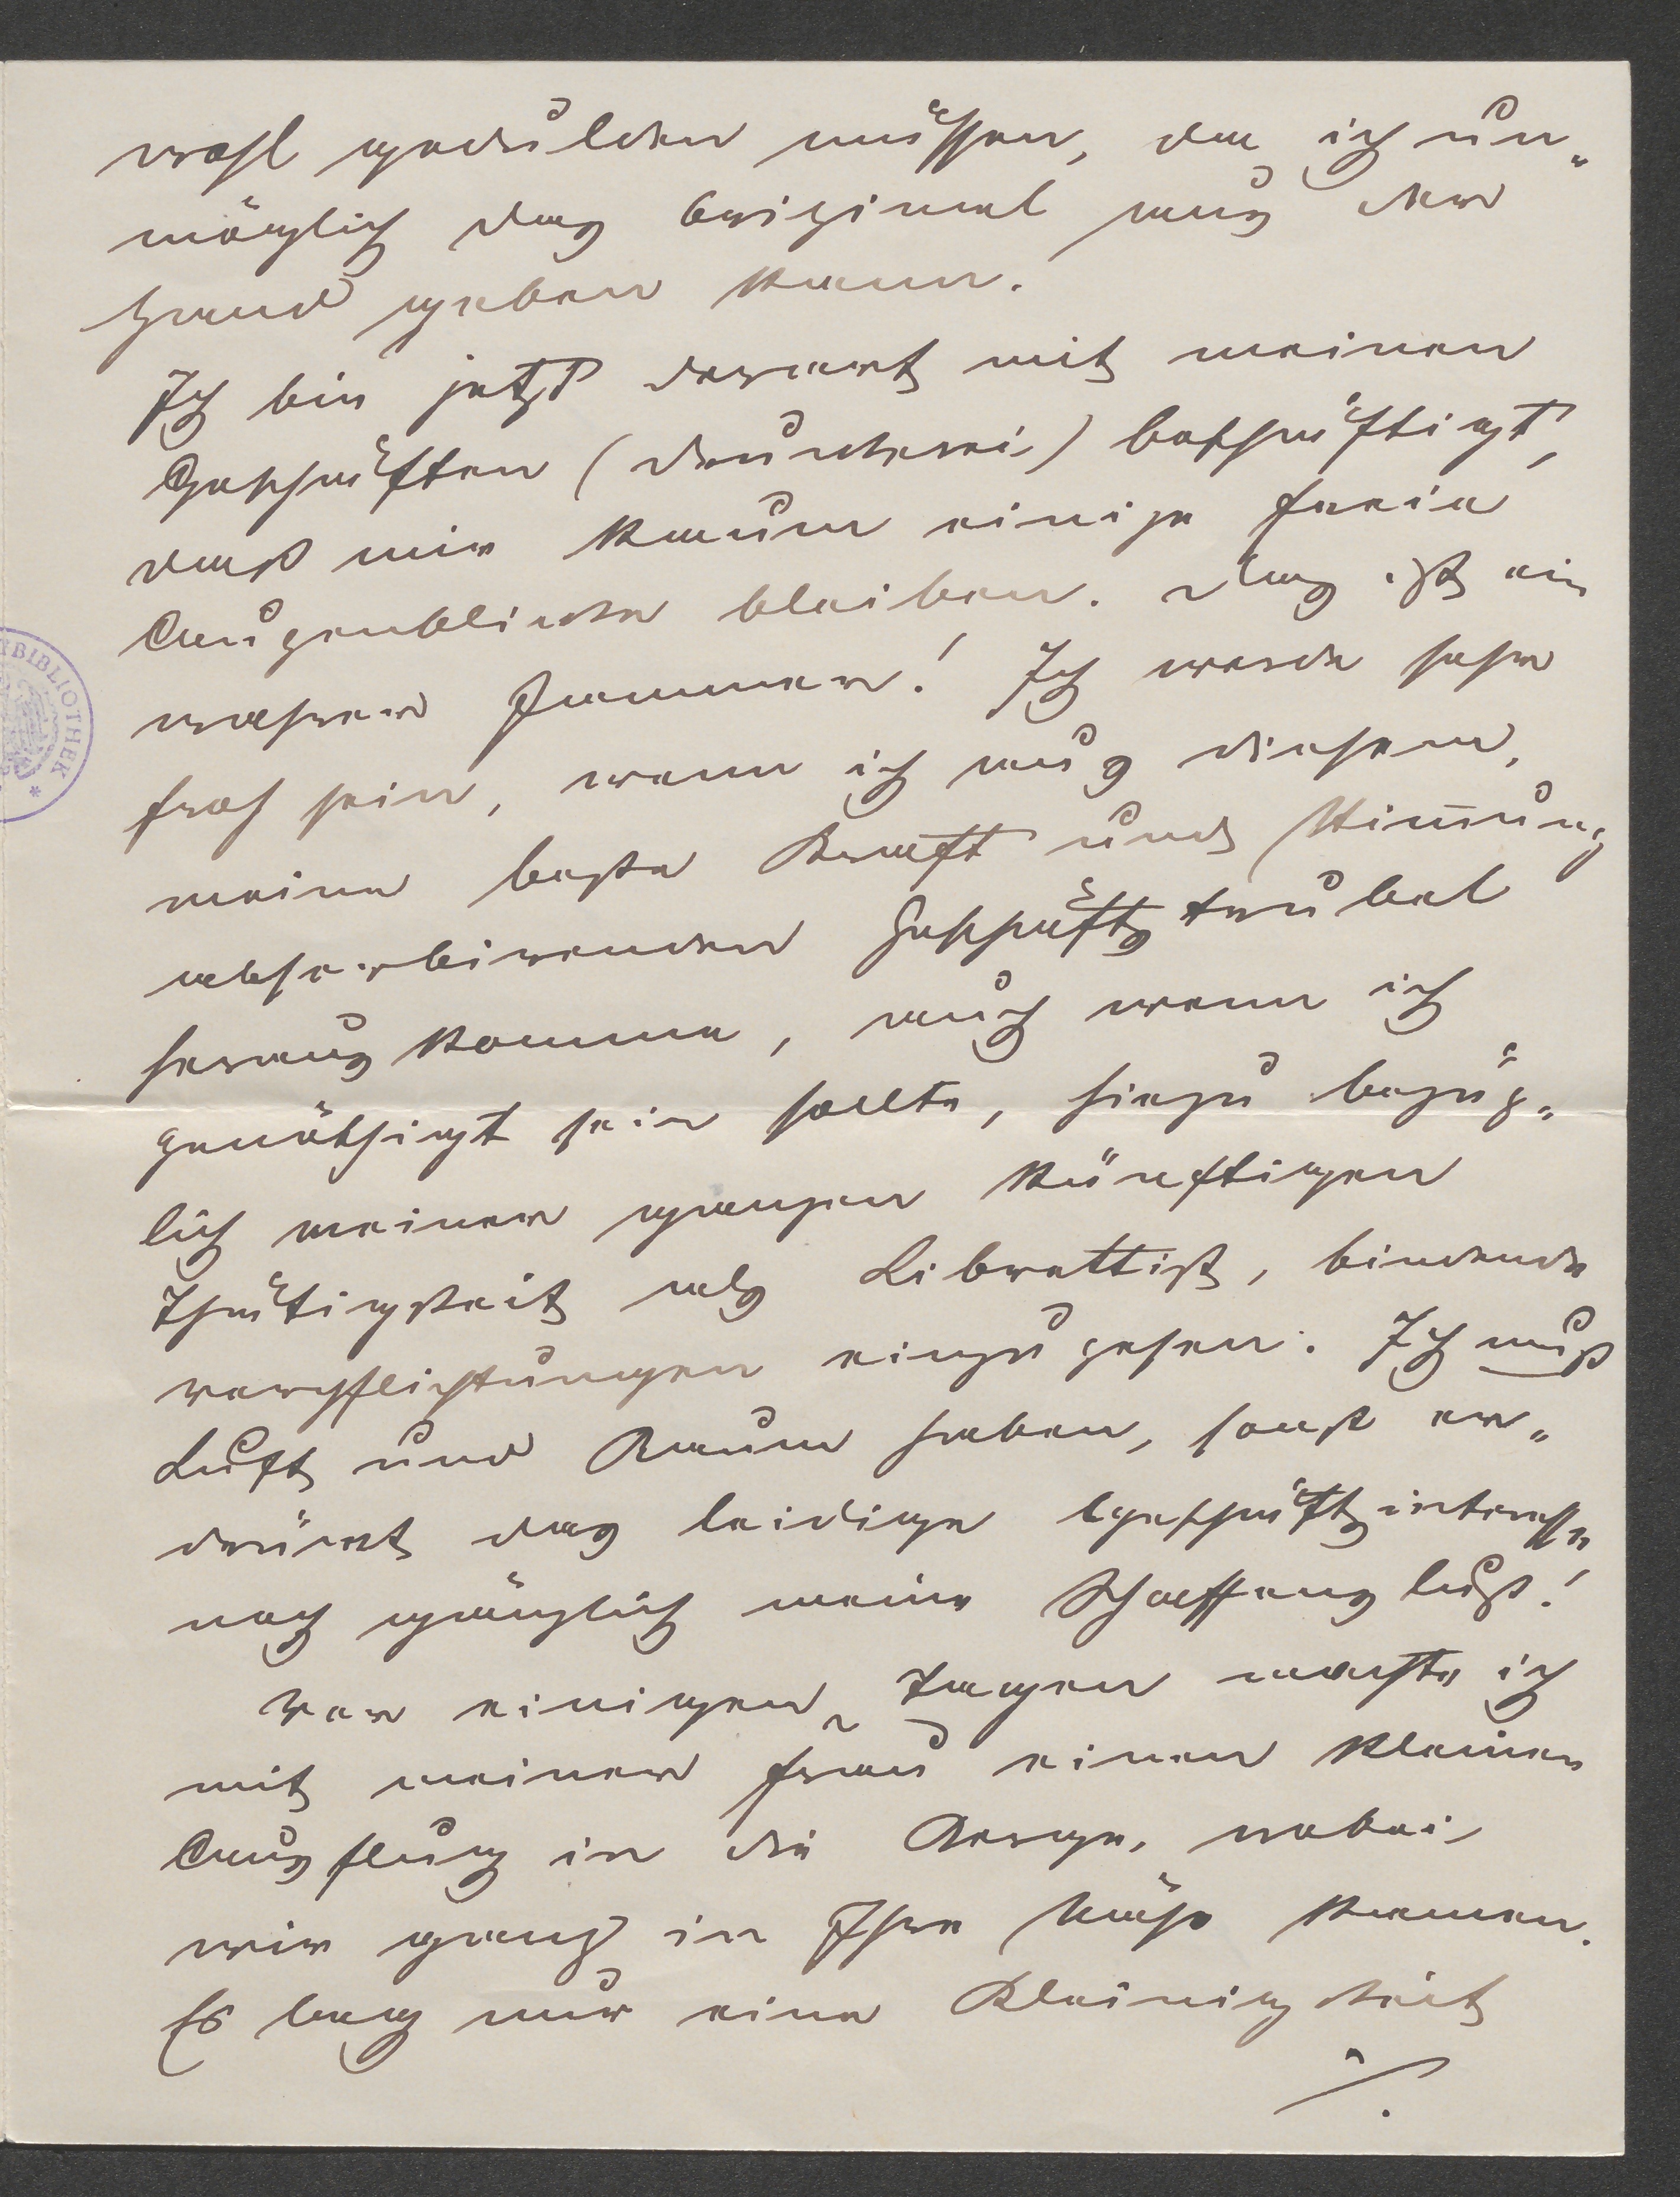 wohl gedulden müssen, da ich un„
möglich das Original aus der
Hand geben kann.
Ich bin jetzt derart mit meinen
Geschäften (Druckerei) beschäftigt,
daß mir kaum einige freie
Augenblicke bleiben. Das ist ein
wahrer Jammer! Ich werde sehr
froh sein, wenn ich aus diesem,
meine beste Kraft und Stim̅ung
absorbirenden Geschäftstrubel
herauskomme, auch wenn ich
genöthigt sein sollte, hiezu bezüg„
lich meiner ganzen künftigen
Thätigkeit als Librettist, bindende
Verpflichtungen einzugehen. Ich muß
Luft und Raum haben, sonst er„
drückt das leidige Geschäftsinteresse
noch gänzlich meine Schaffenslust!
Vor einigen Tagen machte ich
mit meiner Frau einen kleinen
Ausflug in die Berge, wobei
wir ganz in Ihre Nähe kamen.
Es lag nur eine Kleinigkeit
./.
BIBLIOTHEK